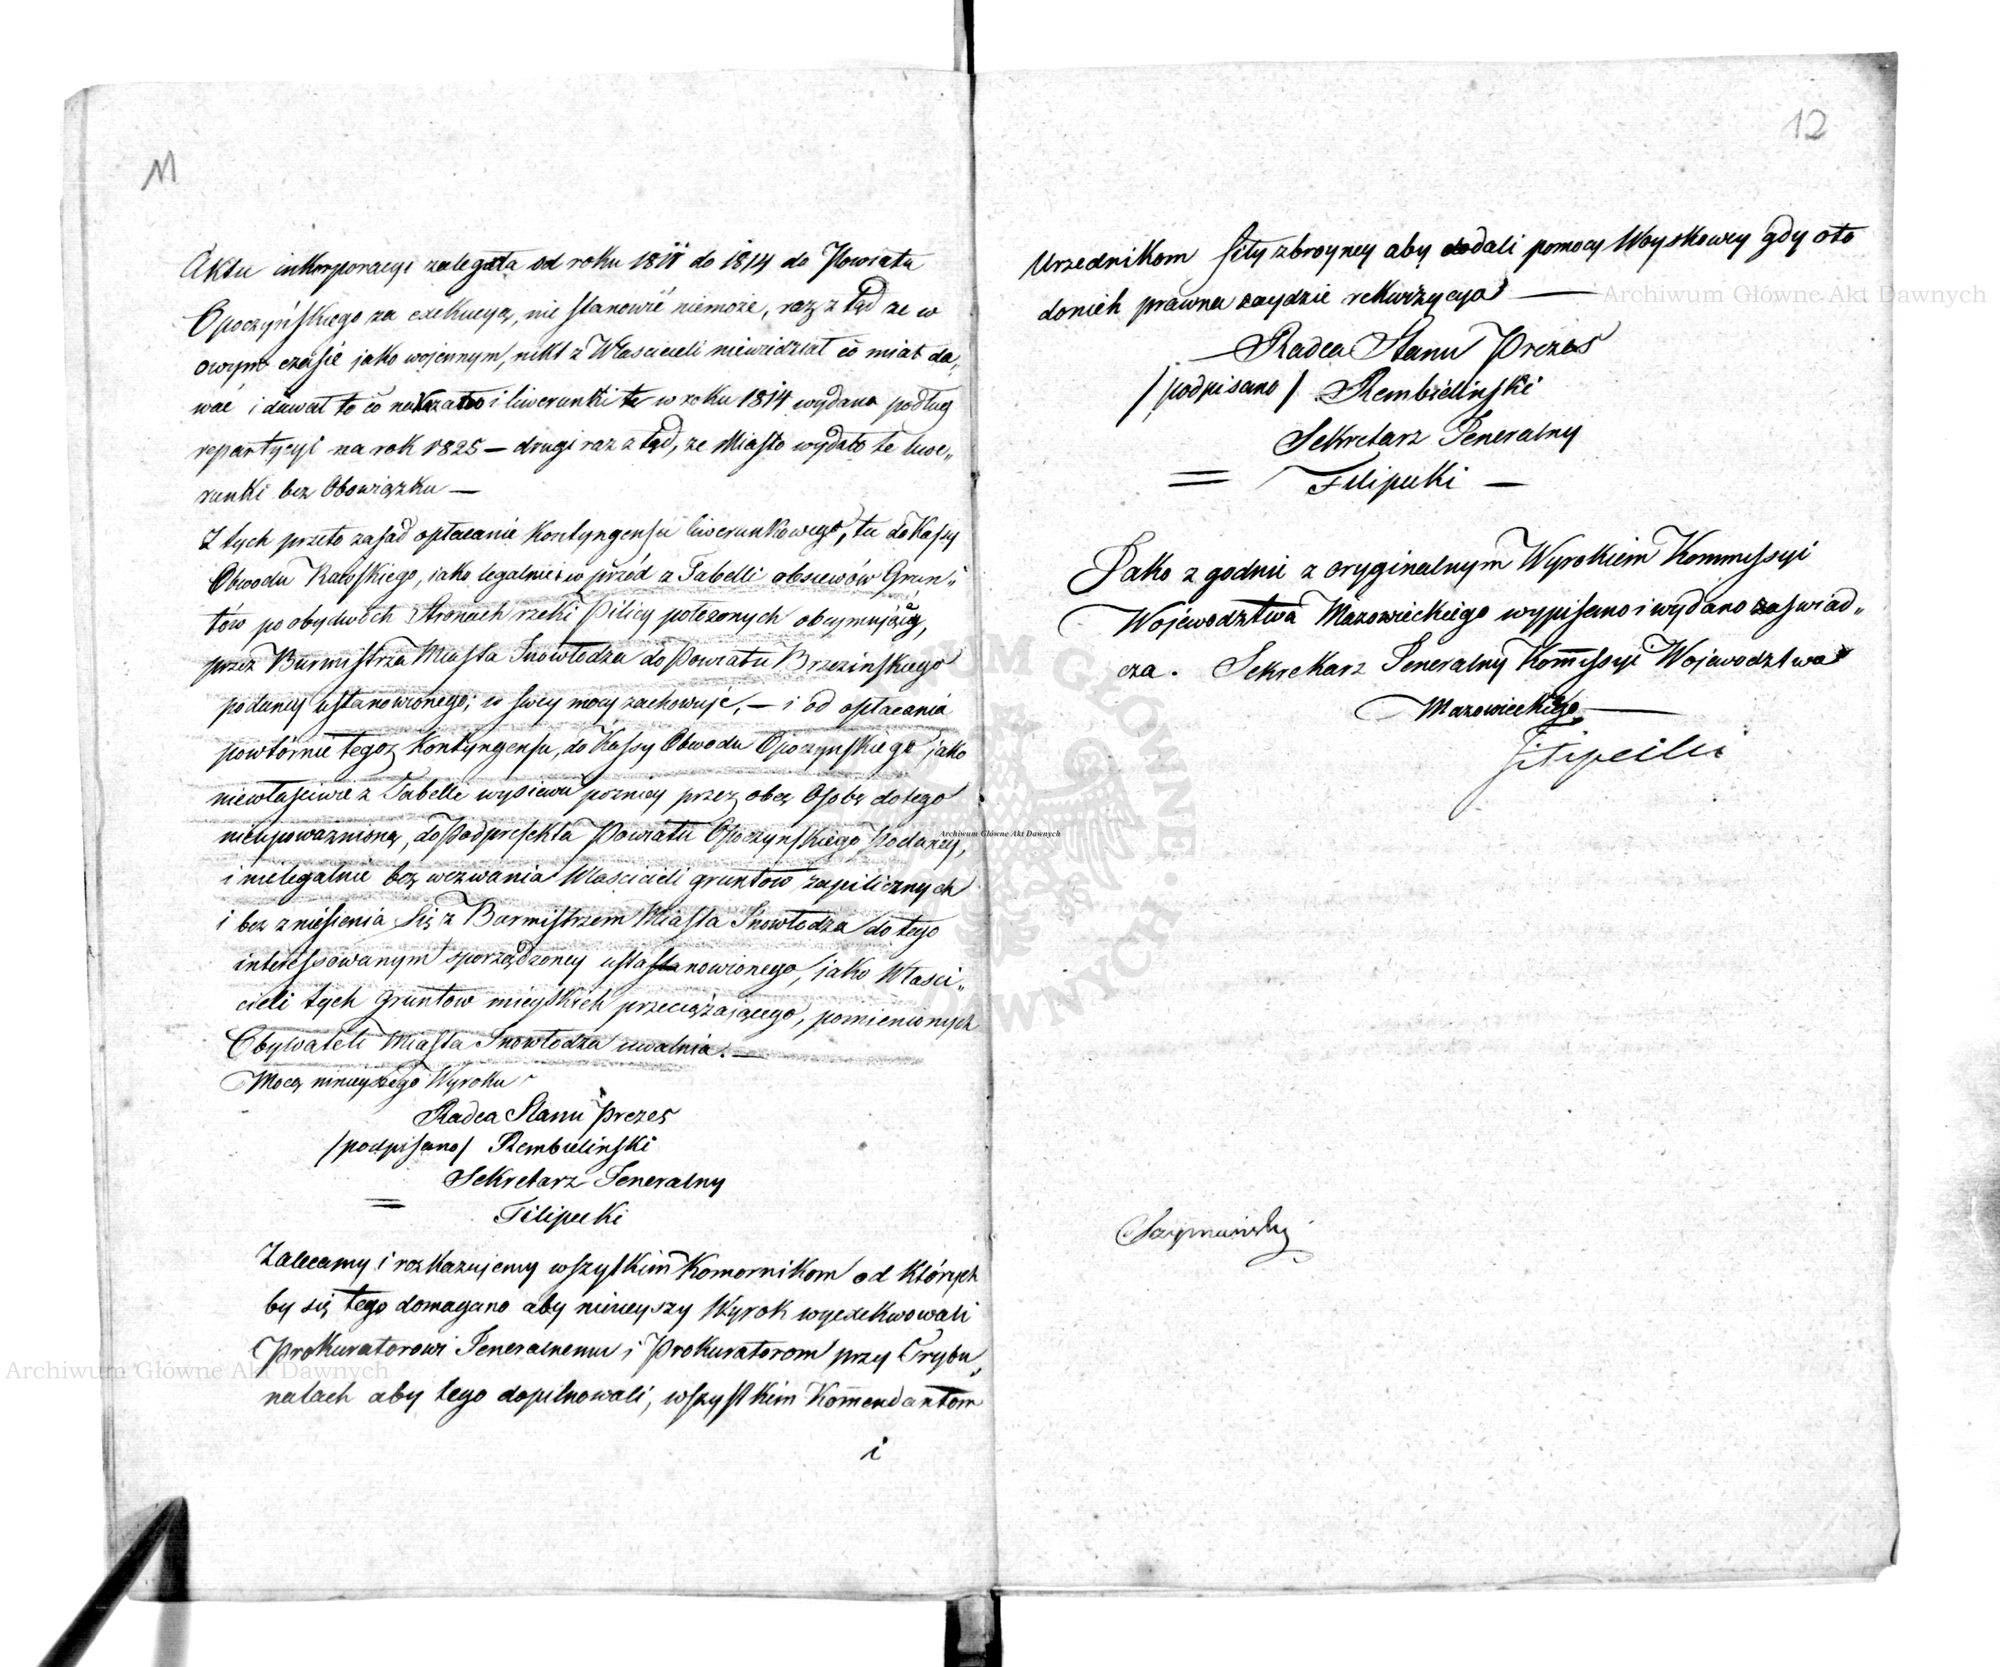 11
Aktu inkorporacyi zalegała od roku 1811 do 1814 do Powiatu
Opoczyńskiego za exekucyą, nie stanowić niemoże, raz z tąd ze w
owym czasie jako wojennym, nikt z Włascicieli niewidział co miał da„
wać i dawał to co nakazano i liwerunki te w roku 1814 wydane podług
repartycyi na rok 1825 — drugi raz z tąd, ze Miasto wydało te liwe„
runki bez Obowiązku —
Z tych przeto zasad opłacanie Kontyngensu liwerunkowego, tu do Kassy
Obwodu Rawskiego, jako legalnie w przód z Tabelli obsiewów Grun„
tów po obydwóch Stronach rzeki Pilicy położonych obeymującey,
przez Burmistrza Miasta Inowłodza do Powiatu Brzezinskiego
podaney ustanowionego; w swey mocy zachowuje, — i od opłacania
powtórnie tegoz Kontyngensu, do Kassy Obwodu Opoczynskiego jako
niewłasciwie z Tabelli wysiewu pozniey przez obcą Osobę do tego
nieupoważnioną, do Podprefekta Powiatu Opoczynskiego Podaney,
i nielegalnie bez wezwania Włascicieli gruntow zapilicznych
i bez zniesienia się z Burmistrzem Miasta Inowłodza do tego
interessowanym sporządzoney ustanowionego, jako Własci„
cieli tych gruntow mieyskich przeciążającego, pomienionych
Obywateli Miasta Inowłodza uwalnia. —
Mocą ninieyszego Wyroku
Radca Stanu Prezes
/podpisano/ Rembielinski
Sekretarz Jeneralny
= Filipecki
Zalecamy i rozkazujemy wszystkim Komornikom od których
by się tego domagano aby ninieyszy Wyrok wyexekwowali
Prokuratorowi Jeneralnemu i Prokuratorom przy Trybu„
nałach aby tego dopilnowali, wszystkim Komendantom
i
12
Urzednikom siły zbroyney aby dodali pomocy Woyskowey gdy oto
donich prawna zaydzie rekwizycya —
Radca Stanu Prezes
/podpisano/ Rembielinski
Sekretarz Jeneralny
= Filipecki —
Jako zgodnie z oryginalnym Wyrokiem Kommissyi
Województwa Mazowieckiego wypisano i wydano zaswiad„
cza. Sekretarz Jeneralny Kommissyi Wojewodztwa
Mazowieckiego —
Filipecki
Szymański
Archiwum Główne Akt Dawnych
Archiwum Główne Akt Dawnych
Archiwum Główne Akt Dawnych